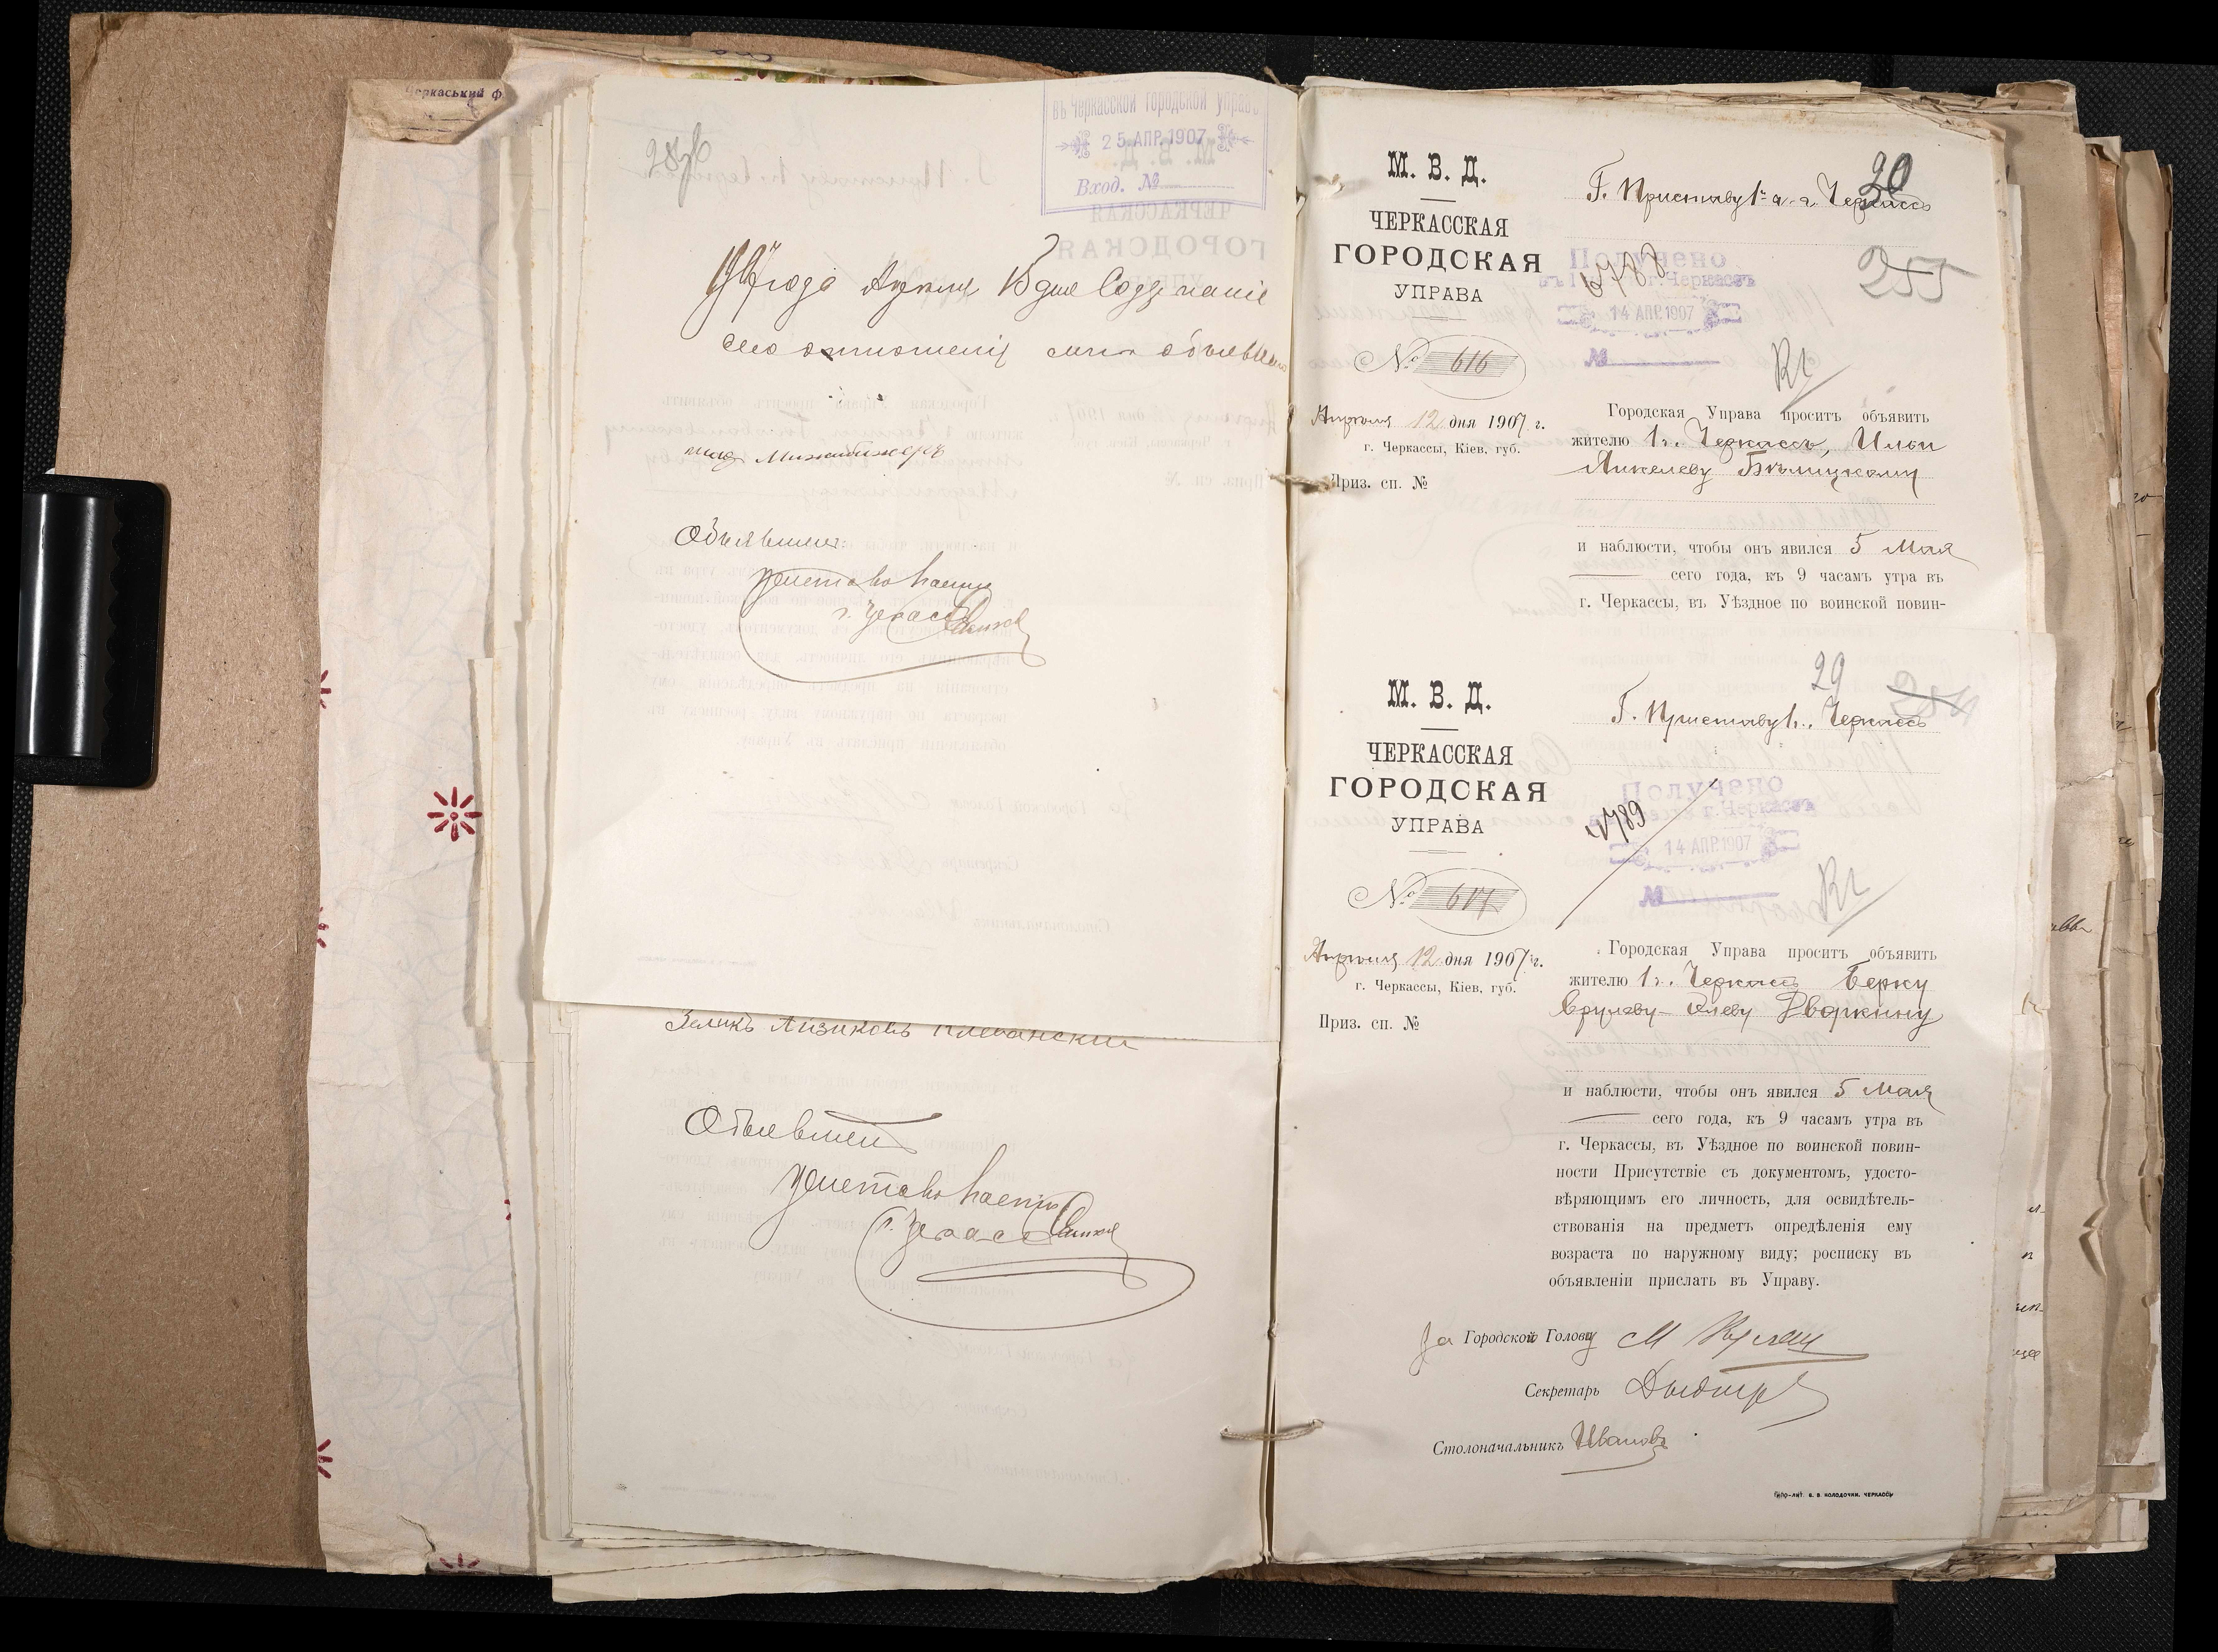 Черкаський ф
въ Черкасской городской управѣ
25 АПР. 1907
Вход. №
1907 года Апреля 15 дня Содержаніе
сего отношенія мнѣ объявлено
Объявилъ:
г. Черкассъ
Зеликъ Айзиковъ
Объявилъ
г. Черкассъ
М. В. Д.
ЧЕРКАССКАЯ
ГОРОДСКАЯ
УПРАВА
№ 616
Апрѣля 12 дня 1907 г.
г. Черкассы, Кіев. губ.
Приз. сп. №
20
Г. Приставу 1 ч. г. Черкассъ
255
Получено
г. Черкассъ
14 АПР. 1907
№
Городская Управа проситъ объявить
жителю г. Черкассъ, Ильи
Янкелеву Бѣлицкому
и наблюсти, чтобы онъ явился 5 Мая
сего года, къ 9 часамъ утра въ
г. Черкассы, въ Уѣздное по воинской повин-
М. В. Д.
ЧЕРКАССКАЯ
ГОРОДСКАЯ
УПРАВА
№ 617
Апрѣля 12 дня 1907 г.
г. Черкассы, Кіев. губ.
Приз. сп. №
29
254
Г. Приставу г. Черкассъ
4789
Получено
г. Черкассъ
14 АПР. 1907
№
Городская Управа проситъ объявить
жителю г. Черкассъ Берку
Срулеву-Елеву Дворкину
и наблюсти, чтобы онъ явился 5 Мая
сего года, къ 9 часамъ утра въ
г. Черкассы, въ Уѣздное по воинской повин-
ности Присутствіе съ документомъ, удосто-
вѣряющимъ его личность, для освидѣтель-
ствованія на предметъ опредѣленія ему
возраста по наружному виду; росписку въ
объявленіи прислать въ Управу.
За Городской Голову
Секретарь
Столоначальникъ Ивановъ
ТИПО-ЛИТ. В. В. КОЛОДОЧКИ. ЧЕРКАССЫ